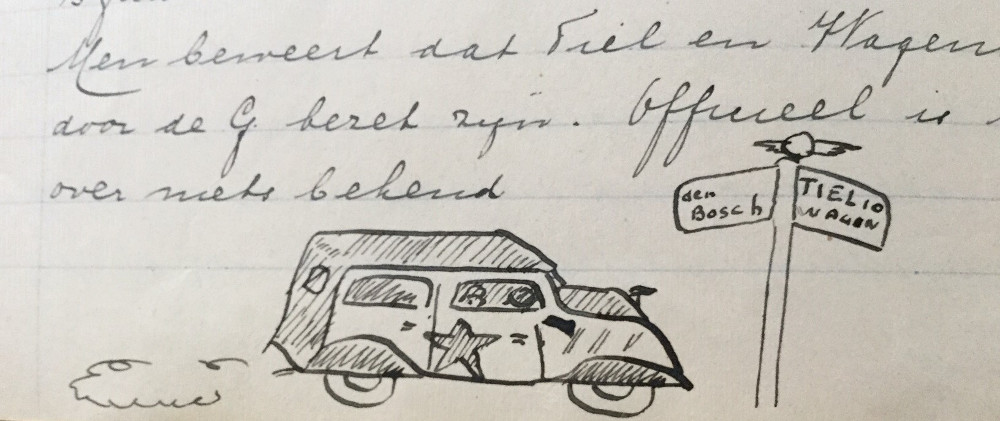 Men beweert dat Tiel en Wagen
door de G. bezet zijn. Officieel is
over niets bekend
den
Bosch
TIEL 10
WAGEN